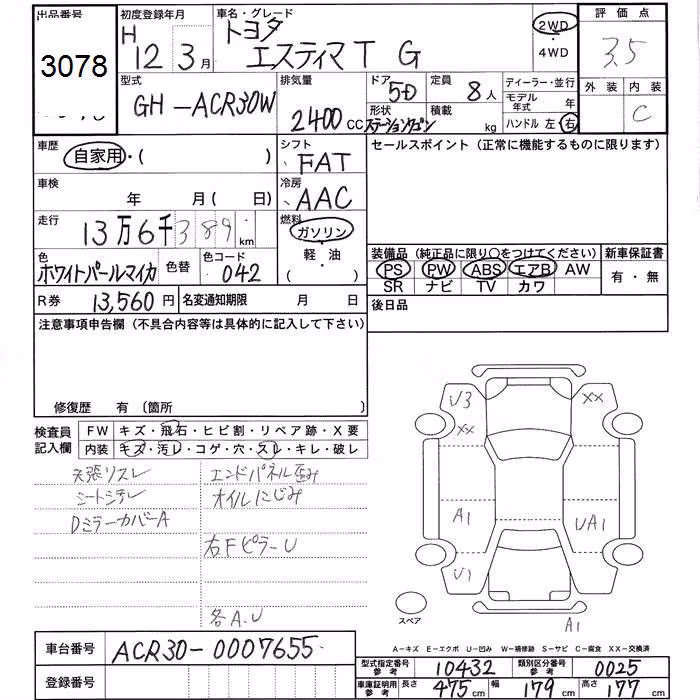 出品番号
3078
初度登録年月
H 12 3月
車名・グレード
トヨタ
エスティマT G
2WD
・
4WD
評価点
3.5
外装 内装
C
型式
GH-ACR30W
排気量
2400cc
ドア
5D
定員
8人
形状
ステーションワゴン
積載
kg
ディーラー・並行
モデル年式 年
ハンドル 左・右
車歴
自家用・( )
シフト
FAT
車検
年 月(日)
冷房
AAC
走行
13万6千389km
燃料
ガソリン
軽・油
( )
色
ホワイトパールマイカ
色替
色コード
042
R券 13,560円
名変通知期限 月 日
セールスポイント(正常に機能するものに限ります)
装備品(純正品に限り○をつけてください)
PS PW ABS エアB AW
SR ナビ TV カワ
新車保証書
有・無
後日品
注意事項申告欄(不具合内容等は具体的に記入して下さい)
修復歴 有〔箇所
検査員記入欄
FW キズ・飛石・ヒビ割・リペア跡・X要
内装 キズ・汚レ・コゲ・穴・スレ・キレ・破レ
天張リスレ
シートシチレ
DミラーカバーA
エンドパネル歪み
オイルにじみ
右FピラーU
各A.U
U3
XX
XX
A1
UA1
U1
スペア
A1
A-キズ E-エクボ U-凹み W-補修跡 S-サビ C-腐食 XX-交換済
車台番号 ACR30-0007655
登録番号
型式指定番号参考 10432
類別区分番号参考 0025
車庫証明用参考 長さ 475cm 幅 179cm 高さ 177cm